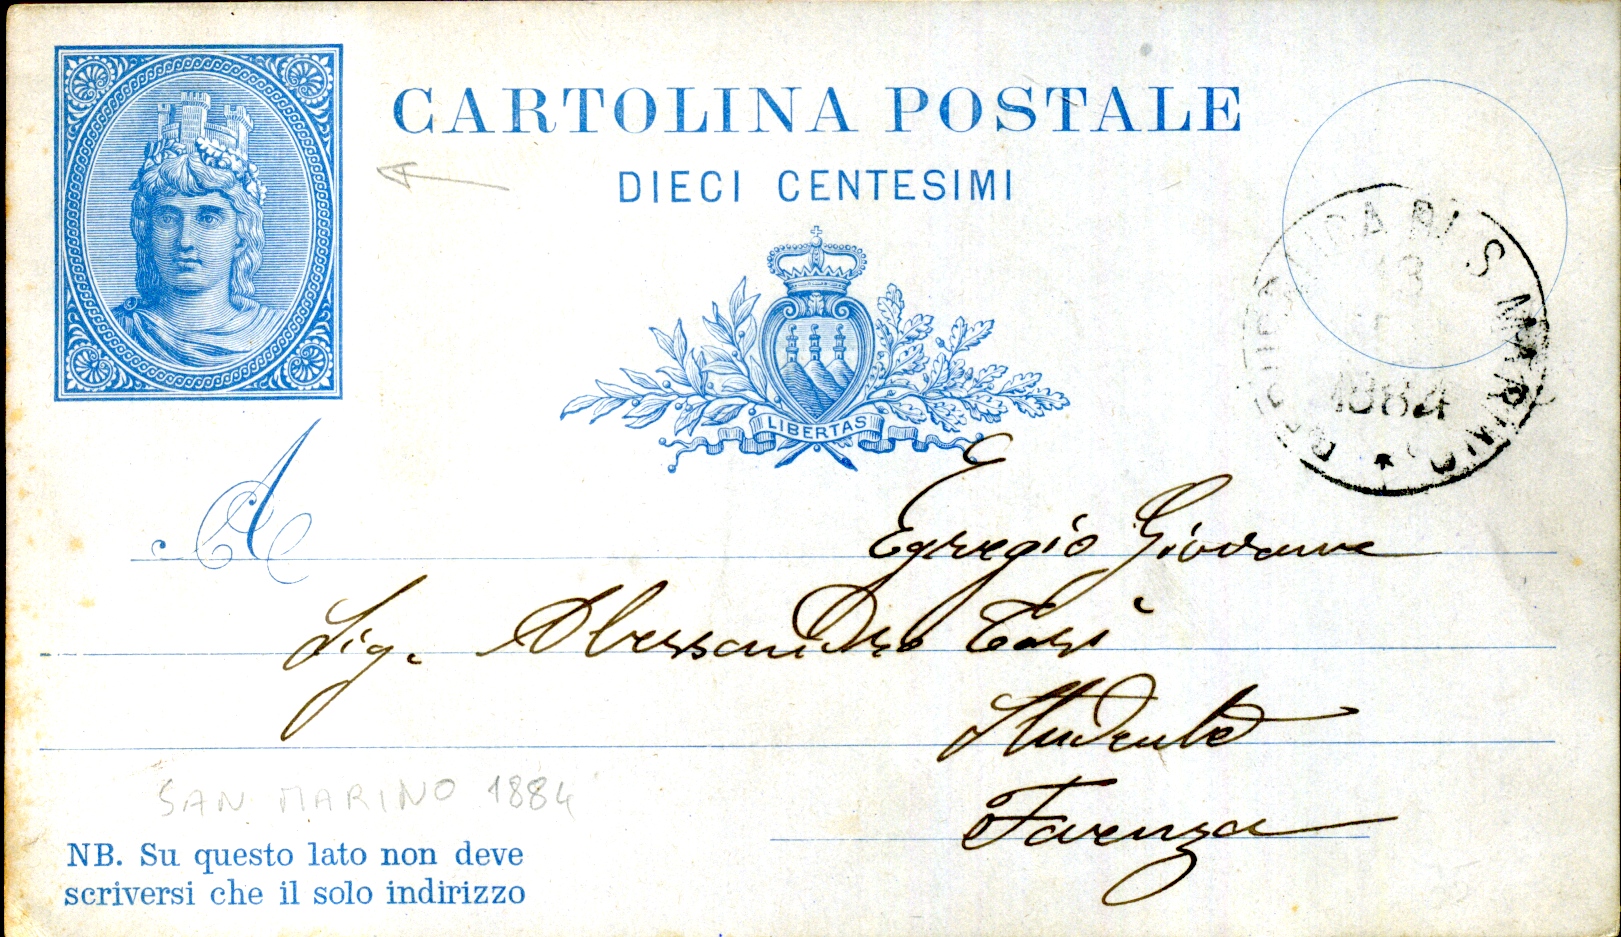 CARTOLINA POSTALE
DIECI CENTESIMI
LIBERTAS
REPUBBLICA DI S. MARINO
13
1884
A
Egregio Giovane
Sig. Alessandro Tosi
Studente
Faenza
SAN MARINO 1884
NB. Su questo lato non deve
scriversi che il solo indirizzo